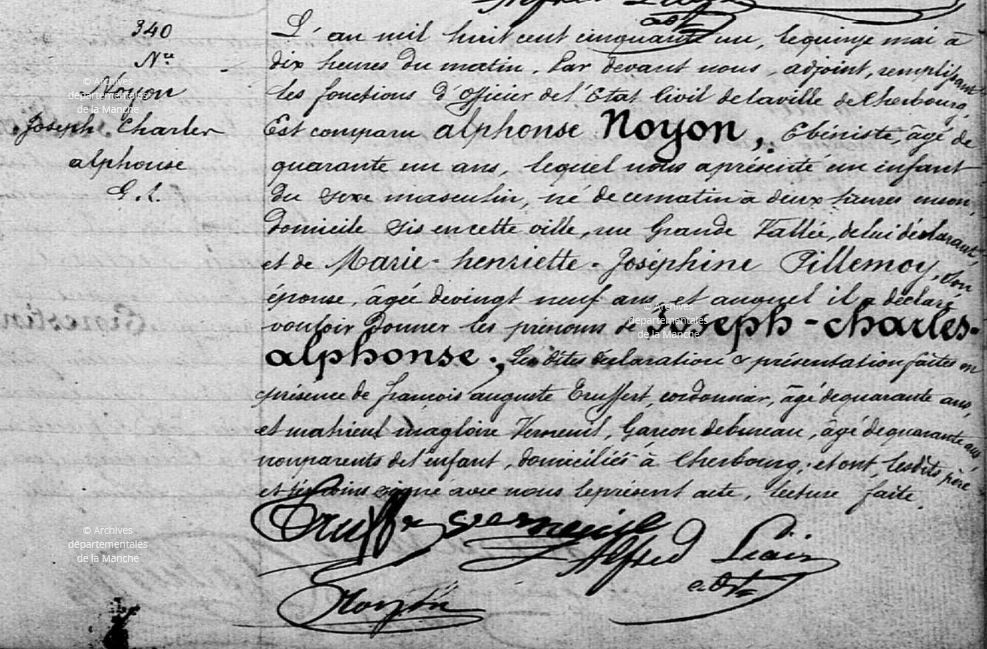 340
Nce
Noyon
Joseph Charles
alphonse
G. L.
L'an mil huit cent cinquante un, le quinze mai à
dix heures du matin. Par devant nous, adjoint, remplissant
les fonctions d'officier de l'Etat Civil de la ville de Cherbourg,
Est comparu alphonse Noyon, Ebéniste, âgé de
quarante un ans, lequel nous a présenté un enfant
du sexe masculin, né de ce matin à deux heures en son,
domicile sis en cette ville, rue Grande Vallée, de lui déclarant,
et de Marie-henriette-Joséphine Pillemoy, son
épouse, âgée de vingt neuf ans, et auquel il a déclaré
vouloir donner les prénoms de Joseph-charles-
alphonse ; Les dites déclaration & présentation faites en
présence de françois auguste Truffert, cordonnier, âgé de quarante ans,
et mathieu magloire Verneuil, Garçon de bureau, âgé de quarante ans,
non parents de l'enfant, domiciliés à Cherbourg ; et ont, lesdits père
et témoins signé avec nous le présent acte, lecture faite.
Truffert Verneuil
Alfred Liais
adt
Noyon
© Archives
départementales
de la Manche
© Archives
départementales
de la Manche
© Archives
départementales
de la Manche